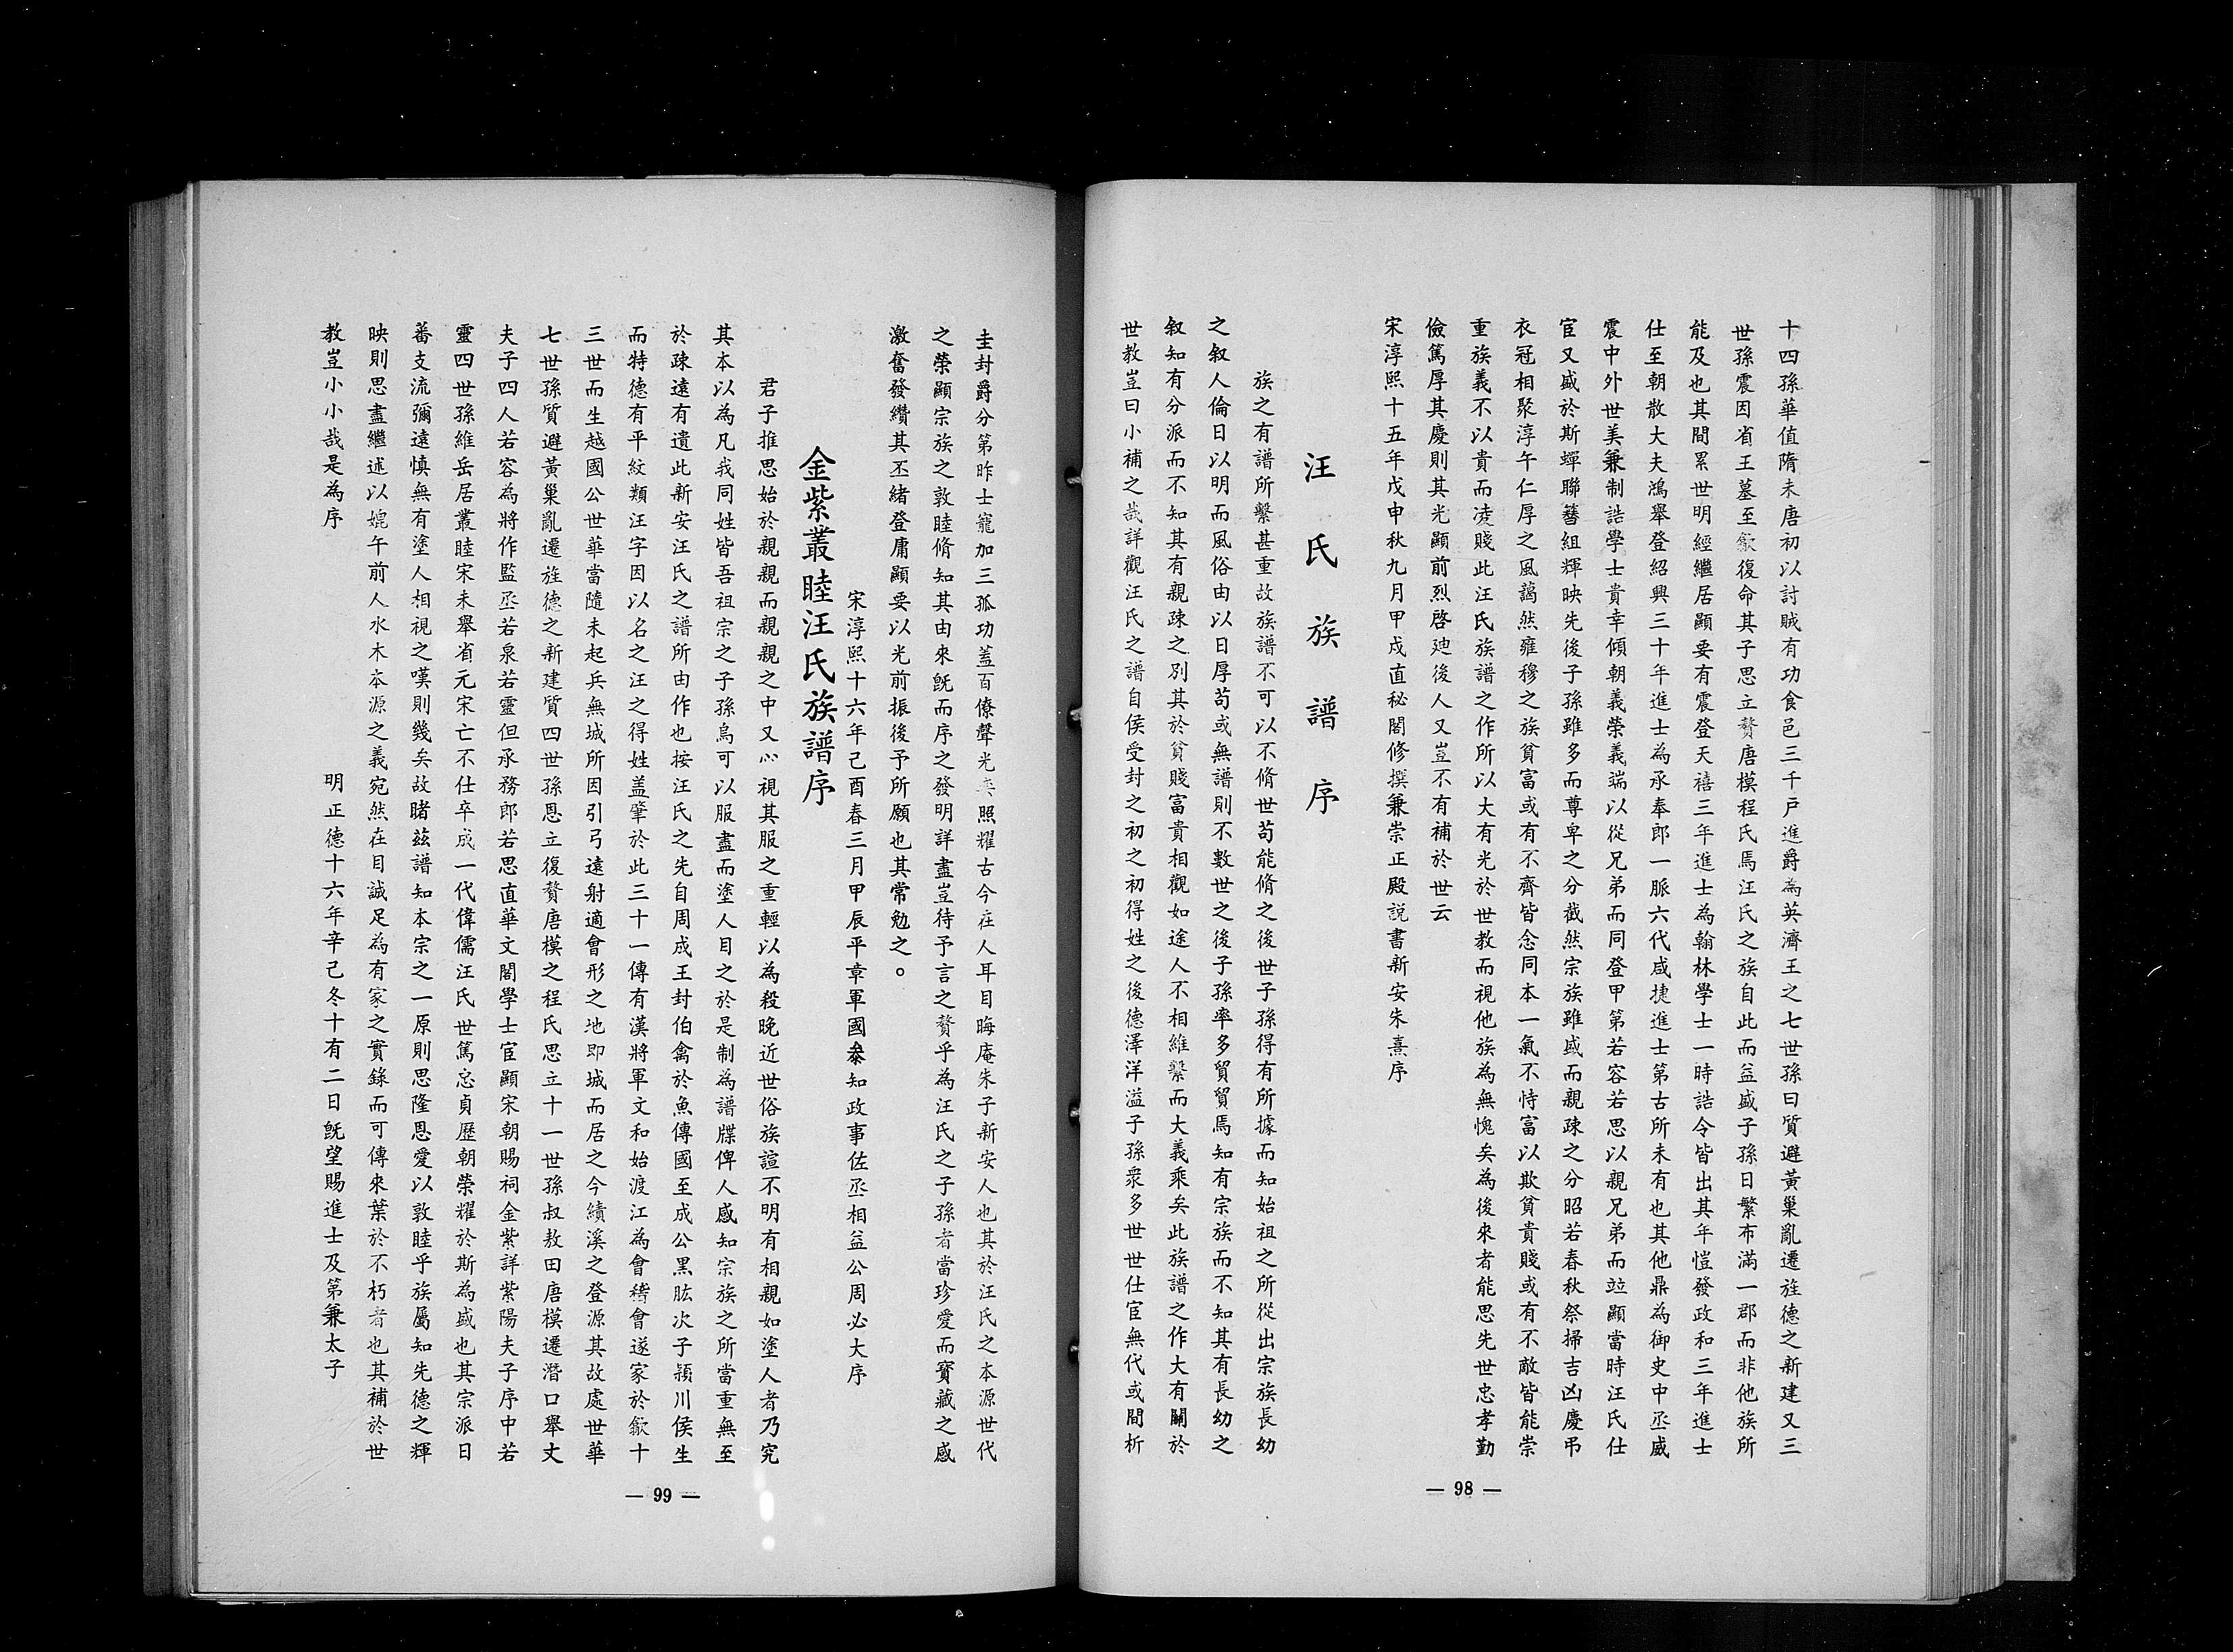 十四孫華值隋末唐初以討賊有功食邑三千戶進爵為英濟王之七世孫曰質避黃巢亂遷旌德之新建又三
世孫震因省王墓至歙復命其子思立贅唐模程氏焉汪氏之族自此而益盛子孫日繁布滿一郡而非他族所
能及也其間累世明經繼居顯要有震登天禧三年進士為翰林學士一時誥令皆出其年愷發政和三年進士
仕至朝散大夫鴻舉登紹興三十年進士為承奉郎一脈六代咸捷進士第古所未有也其他鼎為御史中丞威
震中外世美兼制誥學士貴幸傾朝義榮義端以從兄弟而同登甲第若容若思以親兄弟而竝顯當時汪氏仕
宦又盛於斯蟬聯簪組輝映先後子孫雖多而尊卑之分截然宗族雖盛而親疎之分昭若春秋祭掃吉凶慶弔
衣冠相聚淳午仁厚之風藹然雍穆之族貧富或有不齊皆念同本一氣不恃富以欺貧貴賤或有不敵皆能崇
重族義不以貴而凌賤此汪氏族譜之作所以大有光於世教而視他族為無愧矣為後來者能思先世忠孝勤
儉篤厚其慶則其光顯前烈啓廸後人又豈不有補於世云
宋淳熙十五年戊申秋九月甲戌直秘閣修撰兼崇正殿說書新安朱熹序
汪氏族譜序
族之有譜所繫甚重故族譜不可以不脩世苟能脩之後世子孫得有所據而知始祖之所從出宗族長幼
之叙人倫日以明而風俗由以日厚苟或無譜則不數世之後子孫率多貿貿焉知有宗族而不知其有長幼之
叙知有分派而不知其有親疎之別其於貧賤富貴相觀如途人不相維繫而大義乘矣此族譜之作大有關於
世教豈曰小補之哉詳觀汪氏之譜自侯受封之初之初得姓之後德澤洋溢子孫衆多世世仕宦無代或間析
— 98 —
圭封爵分第昨士寵加三孤功蓋百僚聲光奕照耀古今在人耳目晦庵朱子新安人也其於汪氏之本源世代
之榮顯宗族之敦睦脩知其由來旣而序之發明詳盡豈待予言之贅乎為汪氏之子孫者當珍愛而寶藏之感
激奮發纘其丕緒登庸顯要以光前振後予所願也其常勉之。
宋淳熙十六年己酉春三月甲辰平章軍國叅知政事佐丞相益公周必大序
金紫叢睦汪氏族譜序
君子推思始於親親而親親之中又必視其服之重輕以為殺晚近世俗族諠不明有相親如塗人者乃究
其本以為凡我同姓皆吾祖宗之子孫烏可以服盡而塗人目之於是制為譜牒俾人感知宗族之所當重無至
於疎遠有遺此新安汪氏之譜所由作也按汪氏之先自周成王封伯禽於魚傳國至成公黑肱次子頴川侯生
而特德有平紋類汪字因以名之汪之得姓盖肇於此三十一傳有漢將軍文和始渡江為會稽會遂家於歙十
三世而生越國公世華當隨末起兵無城所因引弓遠射適會形之地即城而居之今績溪之登源其故處世華
七世孫質避黃巢亂遷旌德之新建質四世孫恩立復贅唐模之程氏思立十一世孫叔敖田唐模遷潛口舉丈
夫子四人若容為將作監丞若泉若靈但承務郎若思直華文閣學士宦顯宋朝賜祠金紫詳紫陽夫子序中若
靈四世孫維岳居叢睦宋未舉省元宋亡不仕卒成一代偉儒汪氏世篤忠貞歷朝榮耀於斯為盛也其宗派日
蕃支流彌遠慎無有塗人相視之嘆則幾矣故睹茲譜知本宗之一原則思隆恩愛以敦睦乎族屬知先德之輝
映則思盡繼述以媲午前人水木本源之義宛然在目誠足為有家之實錄而可傳來葉於不朽者也其補於世
教豈小小哉是為序
明正德十六年辛己冬十有二日旣望賜進士及第兼太子
— 99 —